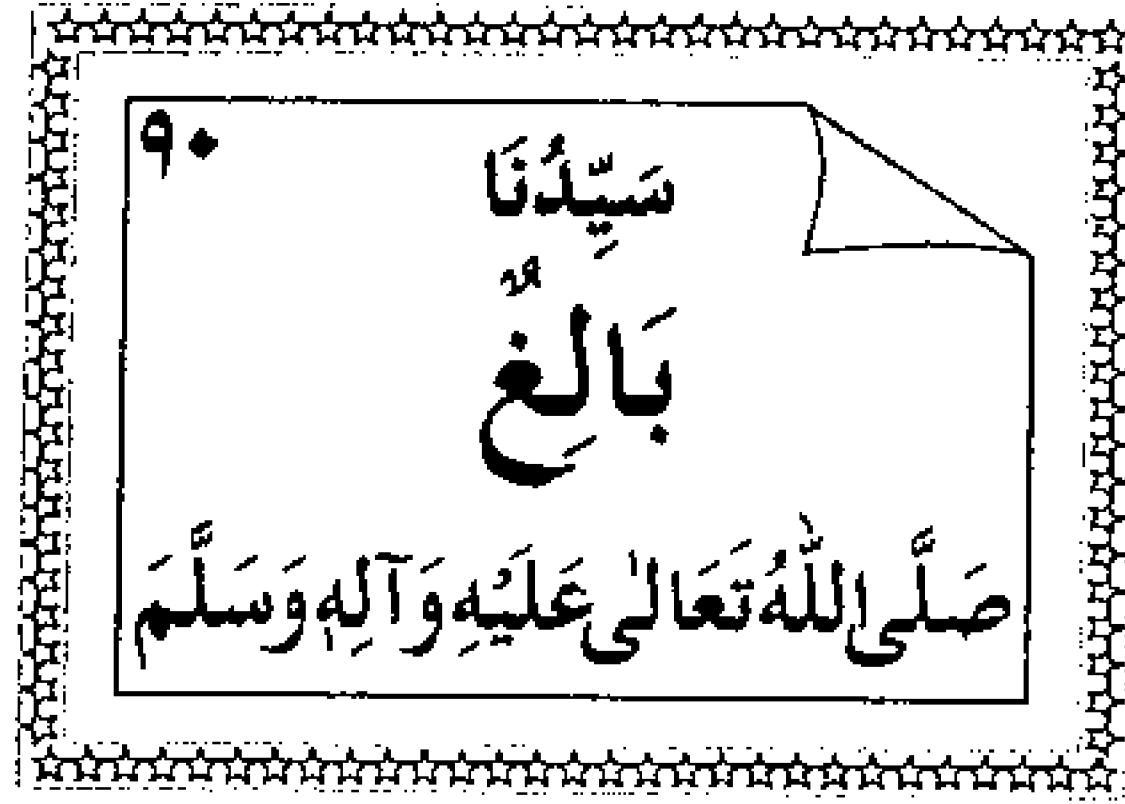 ۹۰
سَيِّدُنَا
بَالِغٌ
صَلَّى اللّٰهُ تَعَالٰى عَلَيْهِ وَآلِهٖ وَسَلَّمَ